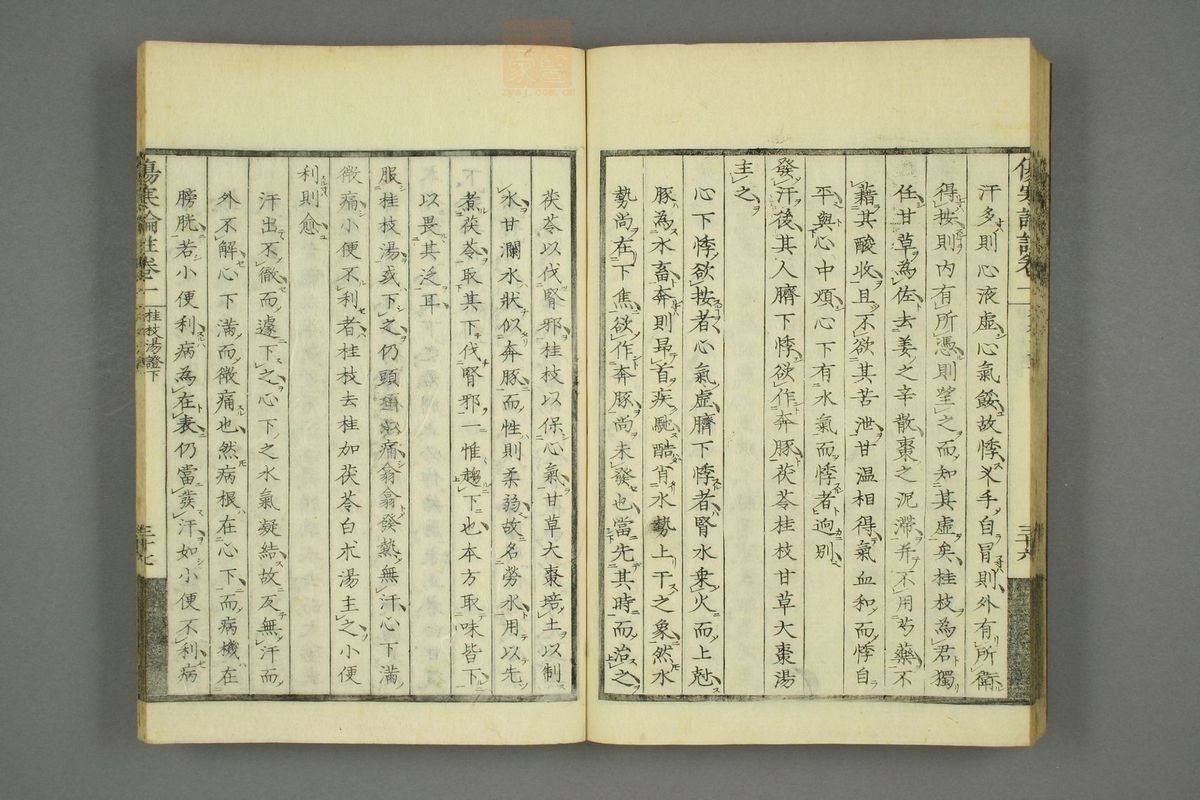 汗多則心液虛心氣餒故悸叉手自冒則外有所衛
得按則内有所憑則望之而知其虛矣桂枝為君獨
任甘草為佐去姜之辛散棗之泥滯并不用芍藥不
藉其酸收且不欲其苦泄甘温相得氣血和而悸自
平與心中煩心下有水氣而悸者迥别
發汗後其人臍下悸欲作奔豚茯苓桂枝甘草大棗湯
主之
心下悸欲按者心氣虛臍下悸者腎水乗火而上尅
豚為水畜奔則昂首疾馳酷肖水勢上干之象然水
勢尚在下焦欲作奔豚尚未發也當先其時而治之
三十六
茯苓以伐腎邪桂枝以保心氣甘草大棗培土以制
水甘瀾水狀似奔豚而性則柔弱故名勞水用以先
煮茯苓取其下伐腎邪一惟趨下也本方取味皆下
以畏其泛耳
服桂枝湯或下之仍頭項強痛翕翕發熱無汗心下滿
微痛小便不利者桂枝去桂加茯苓白朮湯主之小便
利則愈
汗出不徹而遽下之心下之水氣凝結故反無汗而
外不解心下滿而微痛也然病根在心下而病機在
膀胱若小便利病為在表仍當發汗如小便不利病
傷寒論註卷一
桂枝湯證下
三十七